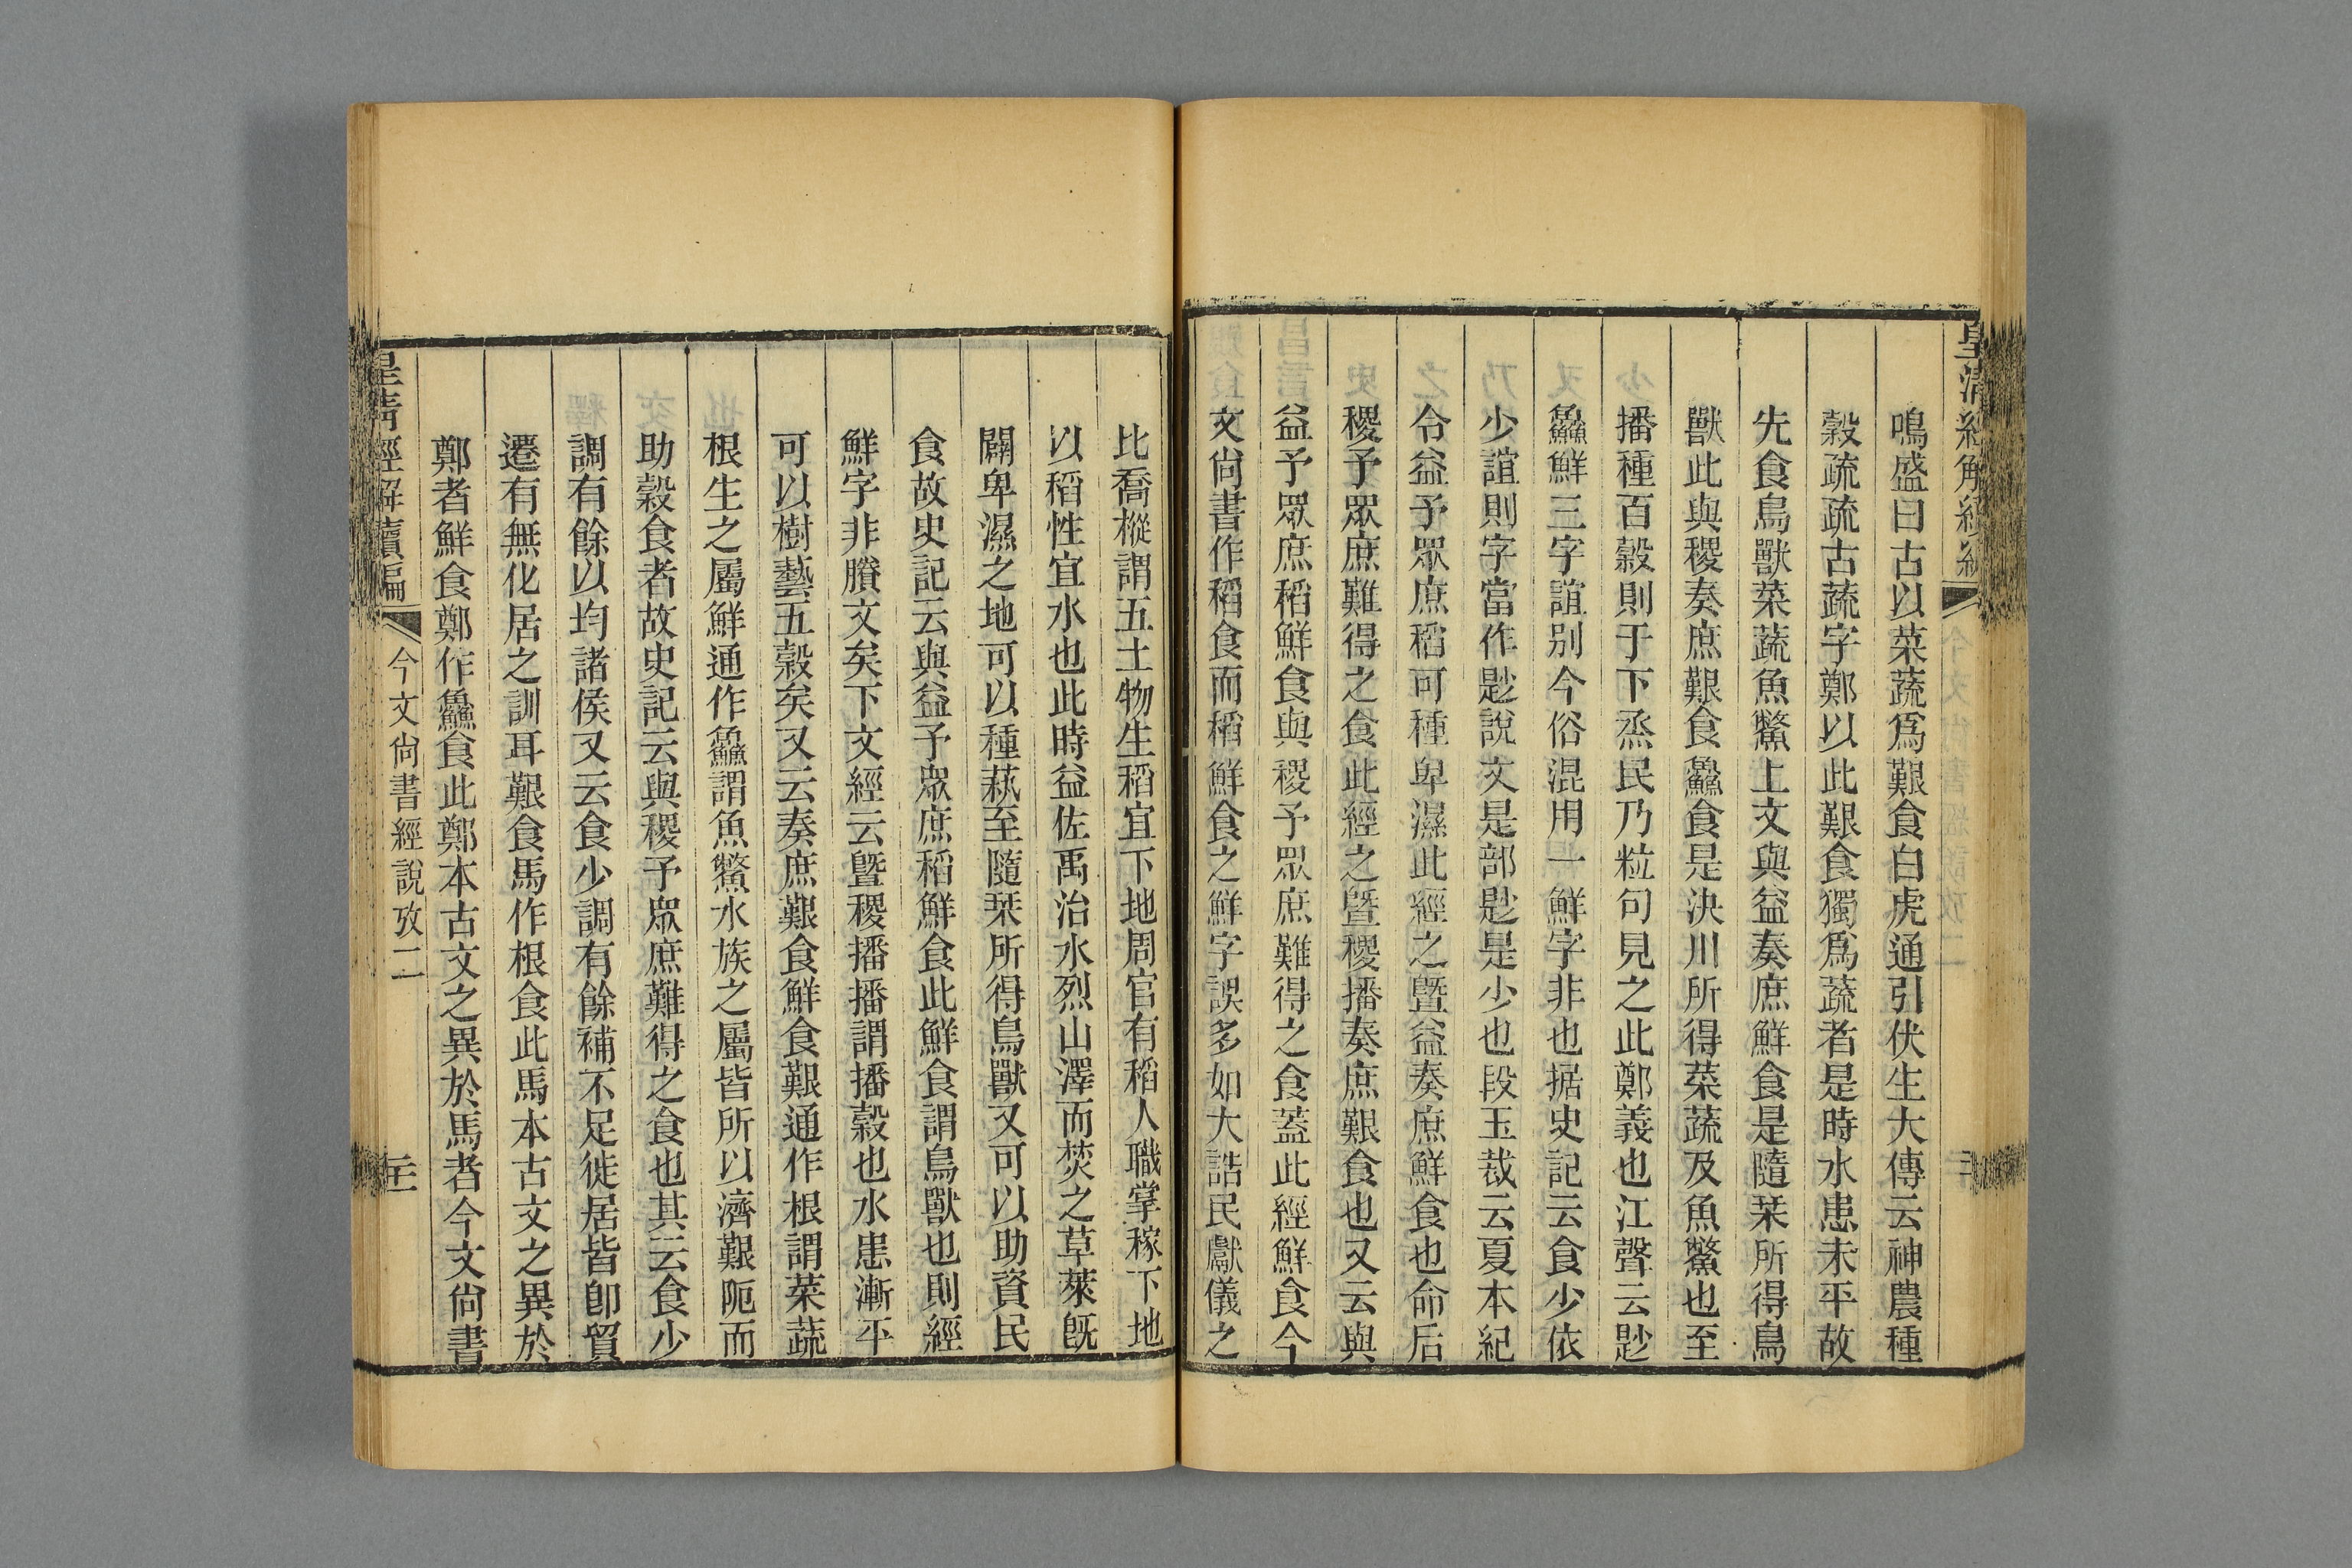 皇清經解續編
鳴盛曰古以菜蔬爲艱食白虎通引伏生大傳云神農種
穀疏疏古蔬字鄭以此艱食獨爲蔬者是時水患未平故
先食鳥獸菜蔬魚鱉上文與益奏庶鮮食是隨栞所得鳥
獸此與稷奏庶艱食鱻食是決川所得菜蔬及魚鱉也至
播種百穀則于下烝民乃粒句見之此鄭義也江聲云尟
鱻鮮三字誼别今俗混用一鮮字非也据史記云食少依
少誼則字當作尟說文是部尟是少也段玉裁云夏本紀
令益予眾庶稻可種卑濕此經之曁益奏庶鮮食也命后
稷予眾庶難得之食此經之曁稷播奏庶艱食也又云與
益予眾庶稻鮮食與稷予眾庶難得之食蓋此經鮮食今
文尙書作稻食而稻鮮食之鮮字誤多如大誥民獻儀之
比喬樅謂五土物生稻宜下地周官有稻人職掌稼下地
以稻性宜水也此時益佐禹治水烈山澤而焚之草萊旣
闢卑濕之地可以種蓺至隨栞所得鳥獸又可以助資民
食故史記云與益予眾庶稻鮮食此鮮食謂鳥獸也則經
鮮字非賸文矣下文經云曁稷播播謂播穀也水患漸平
可以樹藝五穀矣又云奏庶艱食鮮食艱通作根謂菜蔬
根生之屬鮮通作鱻謂魚鱉水族之屬皆所以濟艱阨而
助穀食者故史記云與稷予眾庶難得之食也其云食少
調有餘以均諸侯又云食少調有餘補不足徙居皆卽貿
遷有無化居之訓耳艱食馬作根食此馬本古文之異於
鄭者鮮食鄭作鱻食此鄭本古文之異於馬者今文尙書
皇清經解續編
今文尙書經說攷二